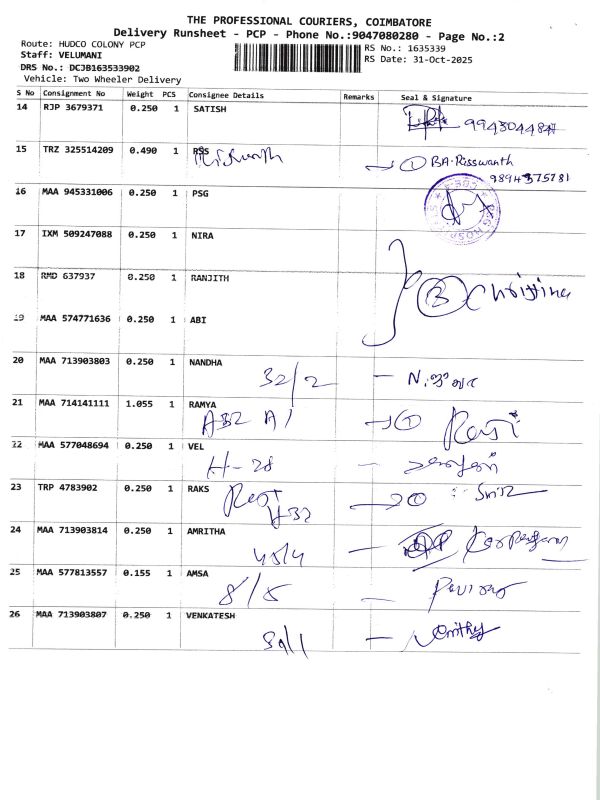 THE PROFESSIONAL COURIERS, COIMBATORE
Delivery Runsheet - PCP - Phone No.:9047080280 - Page No.:2
Route: HUDCO COLONY PCP
RS No.: 1635339
Staff: VELUMANI
RS Date: 31-Oct-2025
DRS No.: DCJB163533902
Vehicle: Two Wheeler Delivery
S No Consignment No Weight PCS Consignee Details Remarks Seal & Signature
14 RJP 3679371 0.250 1 SATISH
15 TRZ 325514209 0.490 1 RSS
1 BA.Risswanth
9894375781
16 MAA 945331006 0.250 1 PSG
17 IXM 509247088 0.250 1 NIRA
18 RMD 637937 0.250 1 RANJITH
3 Christina
19 MAA 574771636 0.250 1 ABI
20 MAA 713903803 0.250 1 NANDHA
32/2
21 MAA 714141111 1.055 1 RAMYA
22 MAA 577048694 0.250 1 VEL
H-28
23 TRP 4783902 0.250 1 RAKS
24 MAA 713903814 0.250 1 AMRITHA
45/4
25 MAA 577813557 0.155 1 AMSA
8/5
26 MAA 713903807 0.250 1 VENKATESH